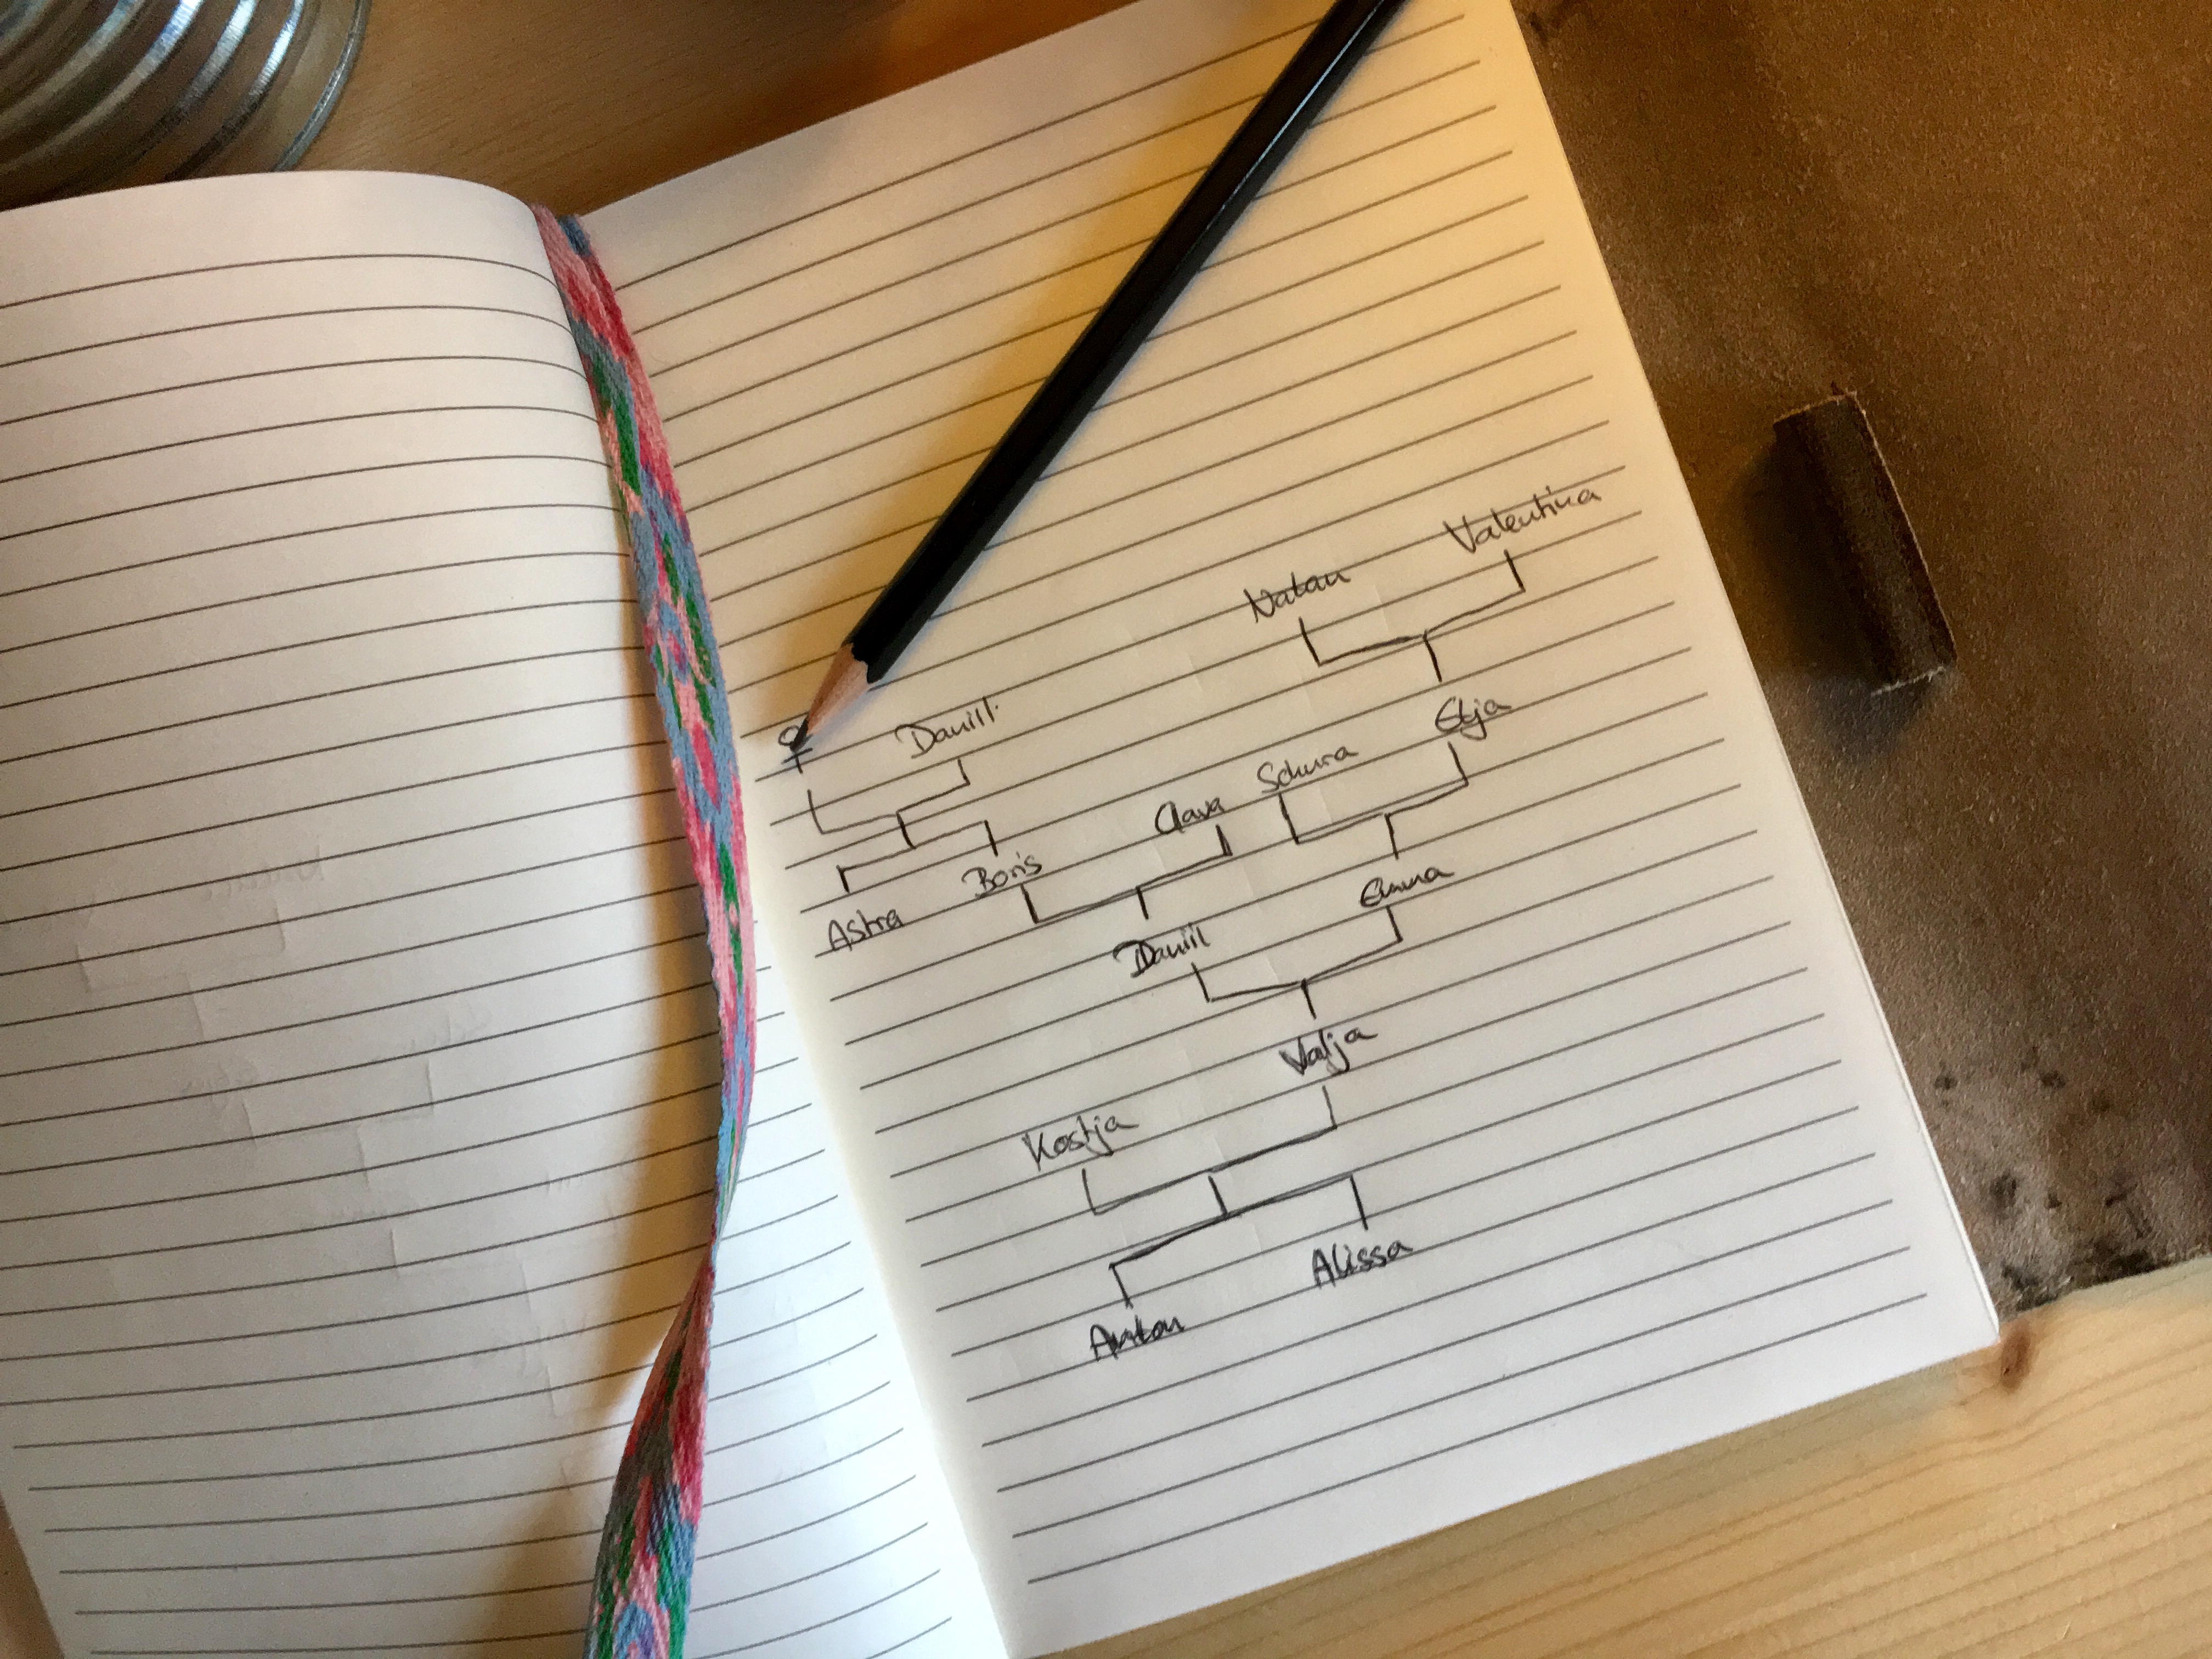 Valentina
Natan
Daniil
Elja
Schura
Clava
Boris
Emma
Astra
Daniil
Valja
Kostja
Alissa
Anton